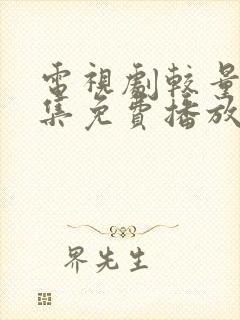 電視劇較量
集免費播放
界先生